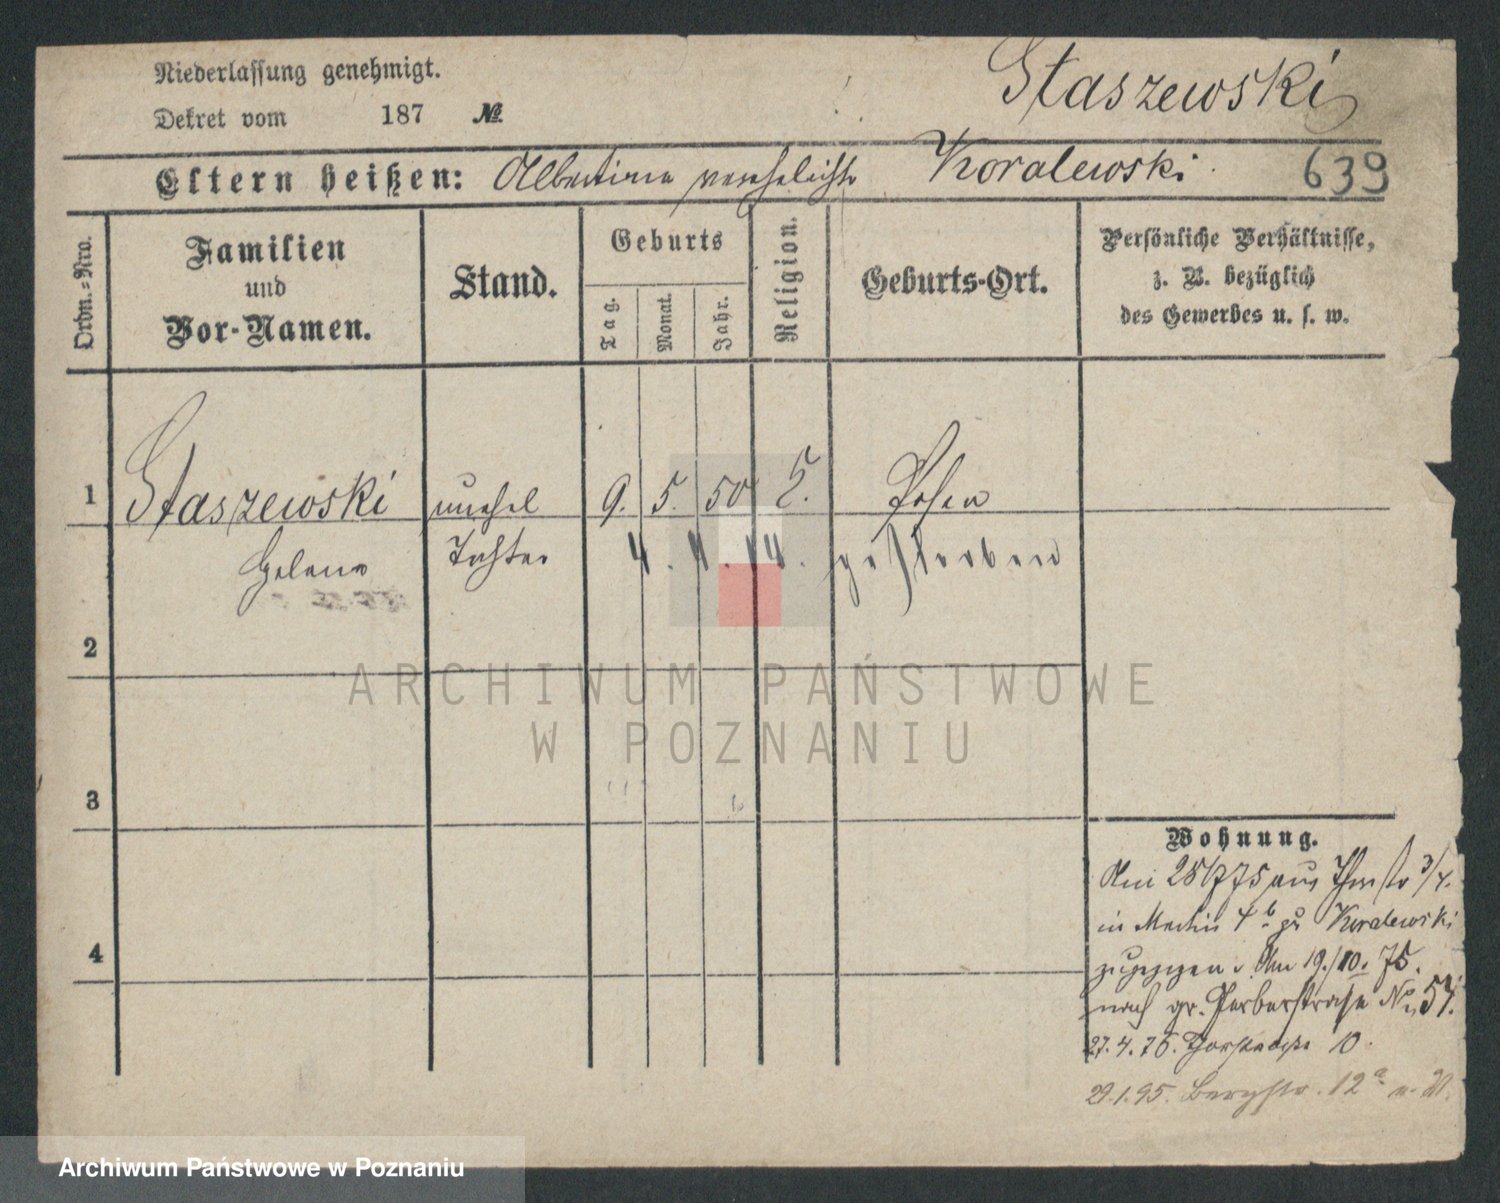 Niederlassung genehmigt.
Dekret vom 187 №
Staszewski
Eltern heißen: Albertine verehelichte Koralewski
639
Ordn.-Nro.
Familien
und
Vor-Namen.
Stand.
Geburts
Tag. Monat. Jahr.
Religion.
Geburts-Ort.
Persönliche Verhältnisse,
z. B. bezüglich
des Gewerbes u. s. w.
1 Staszewski unehel 9. 5. 50 Posen
Helene Tochter 4. 14. gestorben
2
3
4
Wohnung.
Am 28/7 75 aus 3/4.
in Martin 4b zu Koralewski
zugezogen. Am 19./10. 75.
nach gr. Gerberstraße No 51.
27.4.76. Thorstraße 10.
29.1.95. Bergstr. 12a
ARCHIWUM PAŃSTWOWE
W POZNANIU
Archiwum Państwowe w Poznaniu